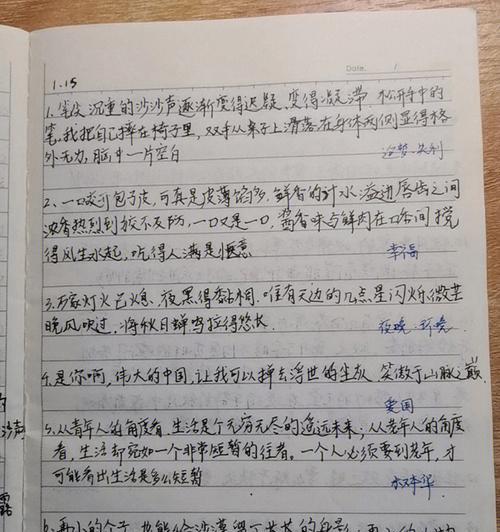 Date. /
1.15
1、笔尖沉重的沙沙声逐渐变得迟疑、变得凝滞、松开手中的
笔、我把自己摔在椅子里，双手从桌子上滑落在身体两侧显得格
外无力，脑中一片空白
失利
2、一口咬开包子皮，可真是皮薄馅多，鲜香的汁水溢边唇齿之间
浓香热烈到猝不及防，一口又是一口，酱香味与鲜肉在口舌间搅
得风生水起，吃得人满是惬意
幸福
3.万家灯火已熄、夜黑得黏稠、唯有天边的几点星闪烁微茫
晚风吹过，将秋日蝉鸣拉得悠长
夜晚·环境
4.是你啊，伟大的中国，让我可以掸去浮世的尘灰，笑傲于山脉之巅
爱国
5、从青年人的角度看，生活是个无穷无尽的遥远未来；从老年人的角度
看，生活却宛如一个非常短暂的往昔。一个人必须要到老年，才
可能看出生活是多么短暂
沙声